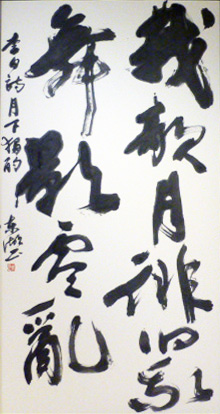 我歌月徘徊我
舞影零亂
李白詩月下獨酌